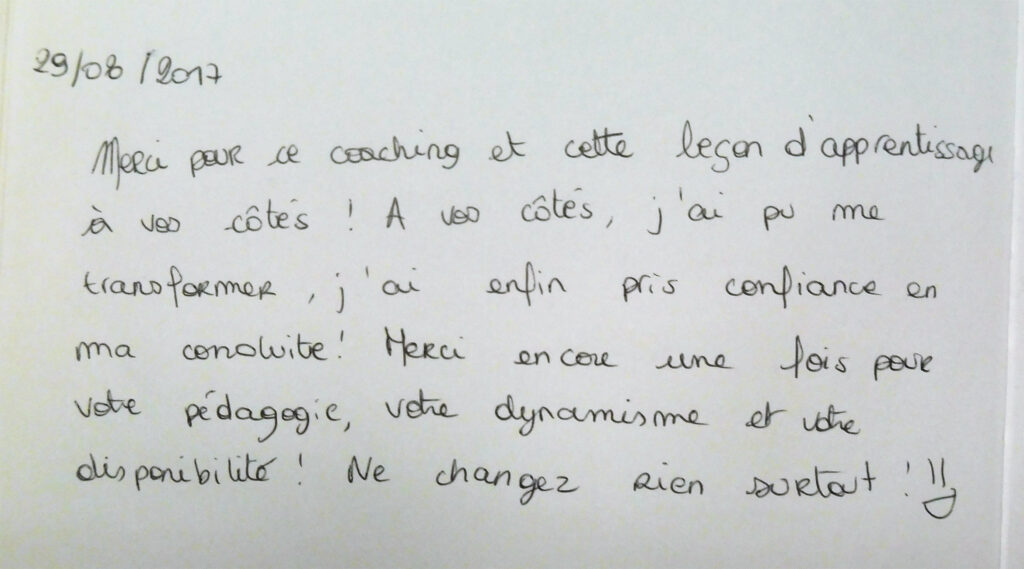 29/08/2017
Merci pour ce coaching et cette leçon d'apprentissage
à vos côtés ! A vos côtés, j'ai pu me
transformer, j'ai enfin pris confiance en
ma conduite ! Merci encore une fois pour
votre pédagogie, votre dynamisme et votre
disponibilité ! Ne changez rien surtout !